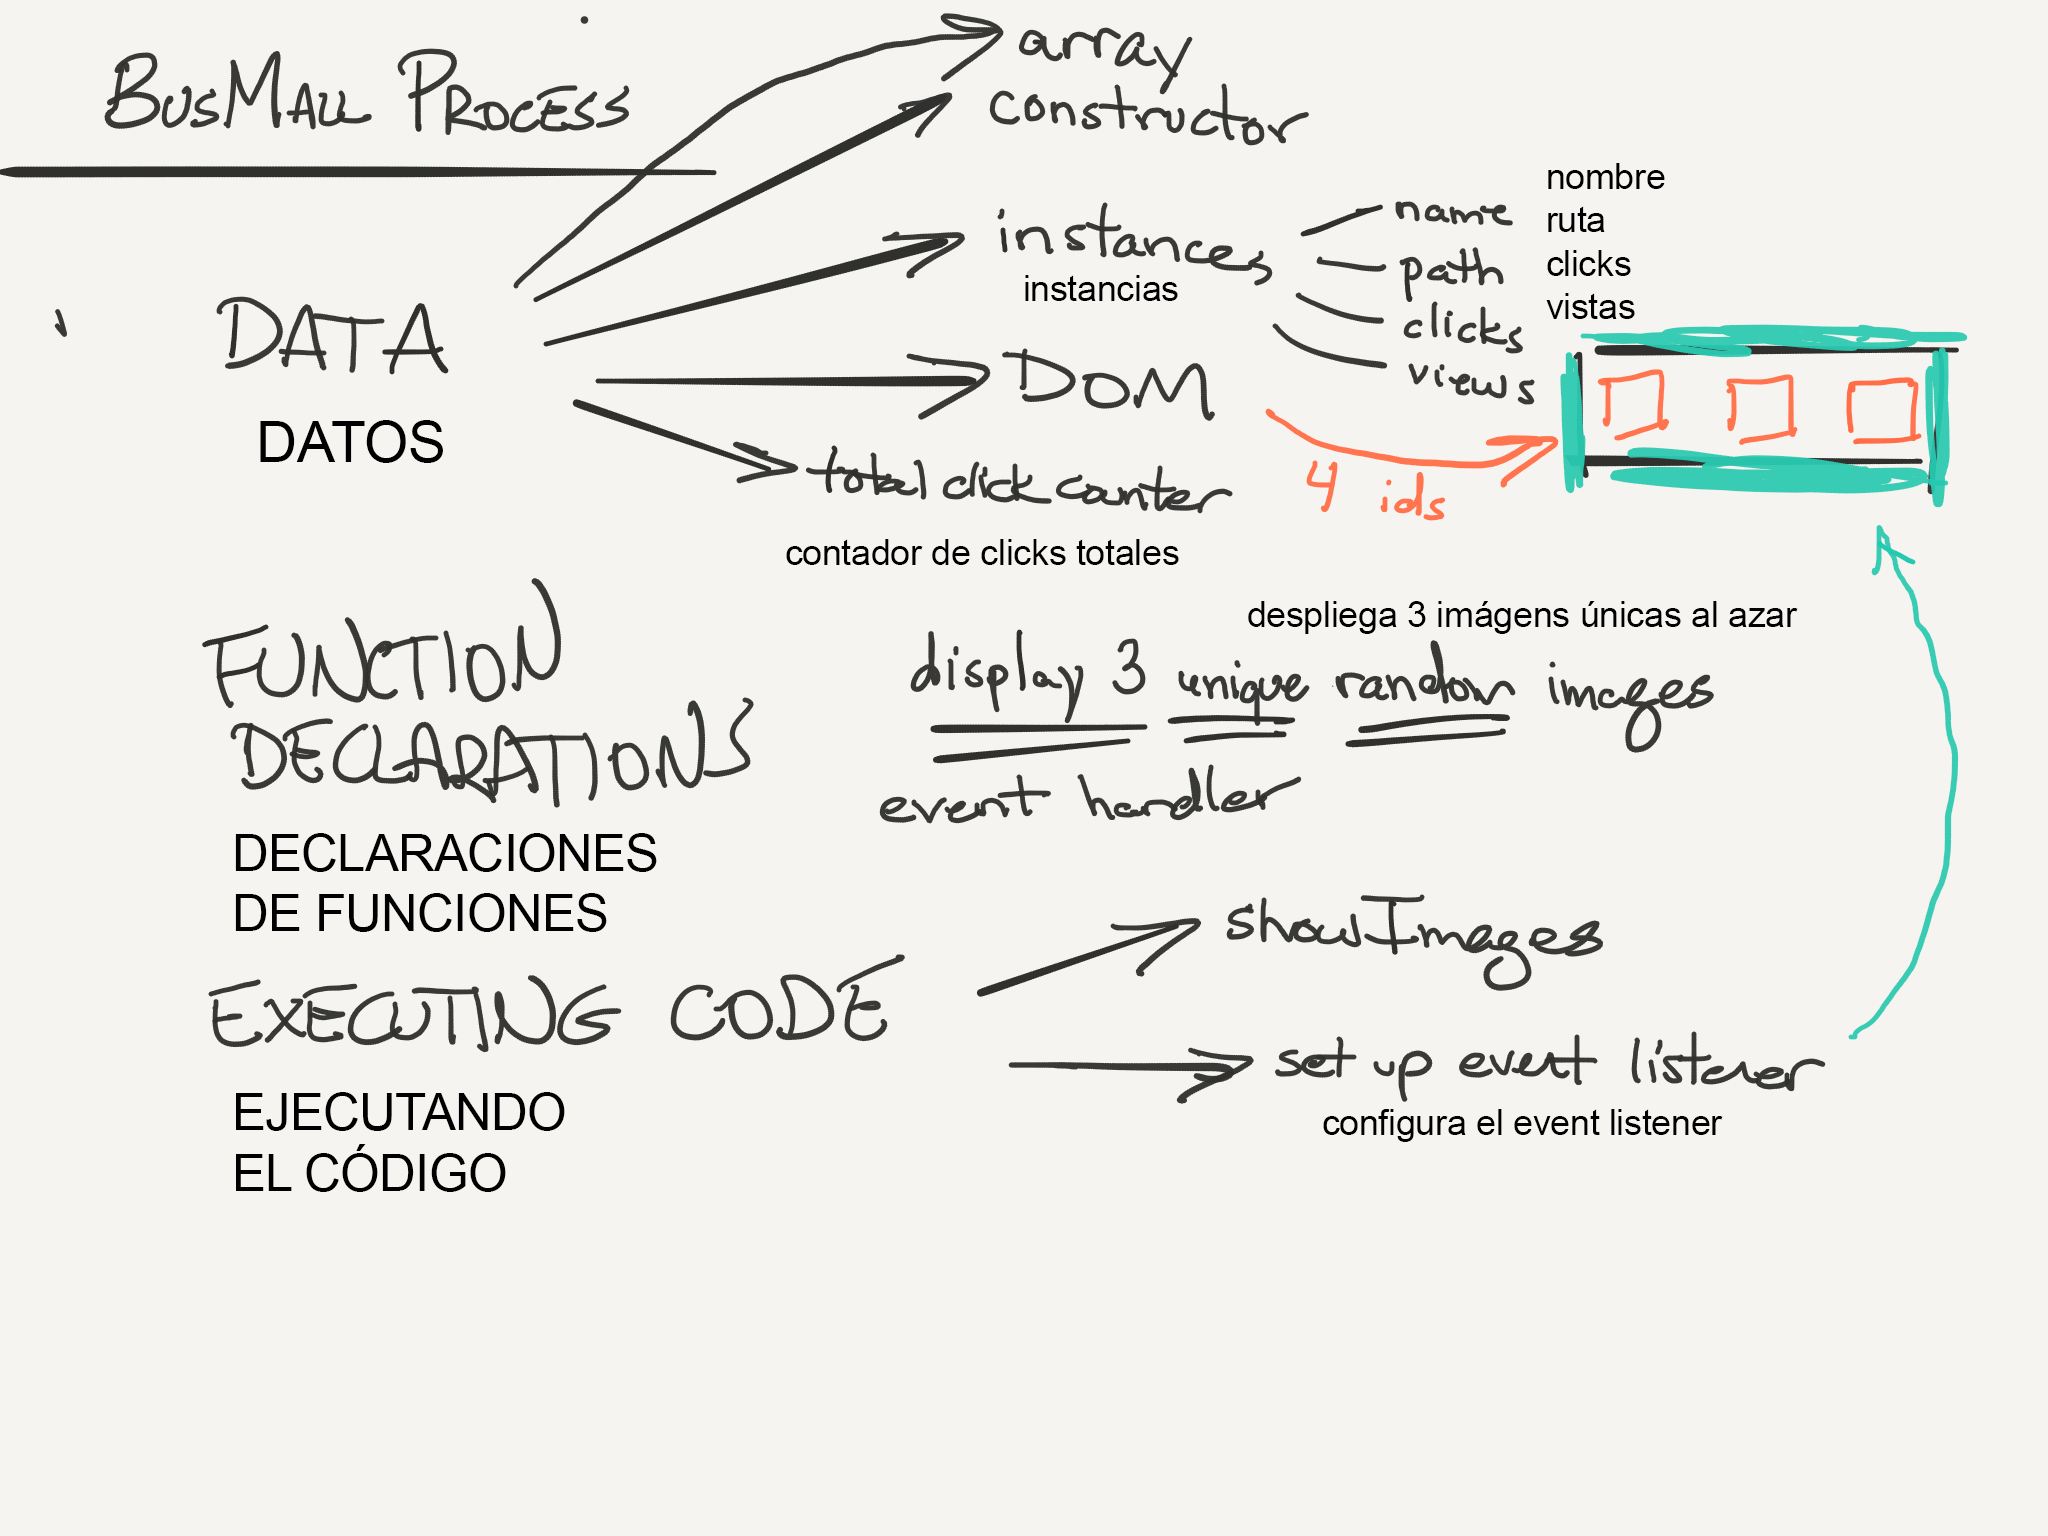 BUSMALL PROCESS
array
constructor
instances
instancias
name
path
clicks
views
nombre
ruta
clicks
vistas
DATA
DATOS
DOM
total click counter
contador de clicks totales
4 ids
FUNCTION
DECLARATIONS
DECLARACIONES
DE FUNCIONES
despliega 3 imágens únicas al azar
display 3 unique random images
event handler
EXECUTING CODE
EJECUTANDO
EL CÓDIGO
showImages
set up event listener
configura el event listener